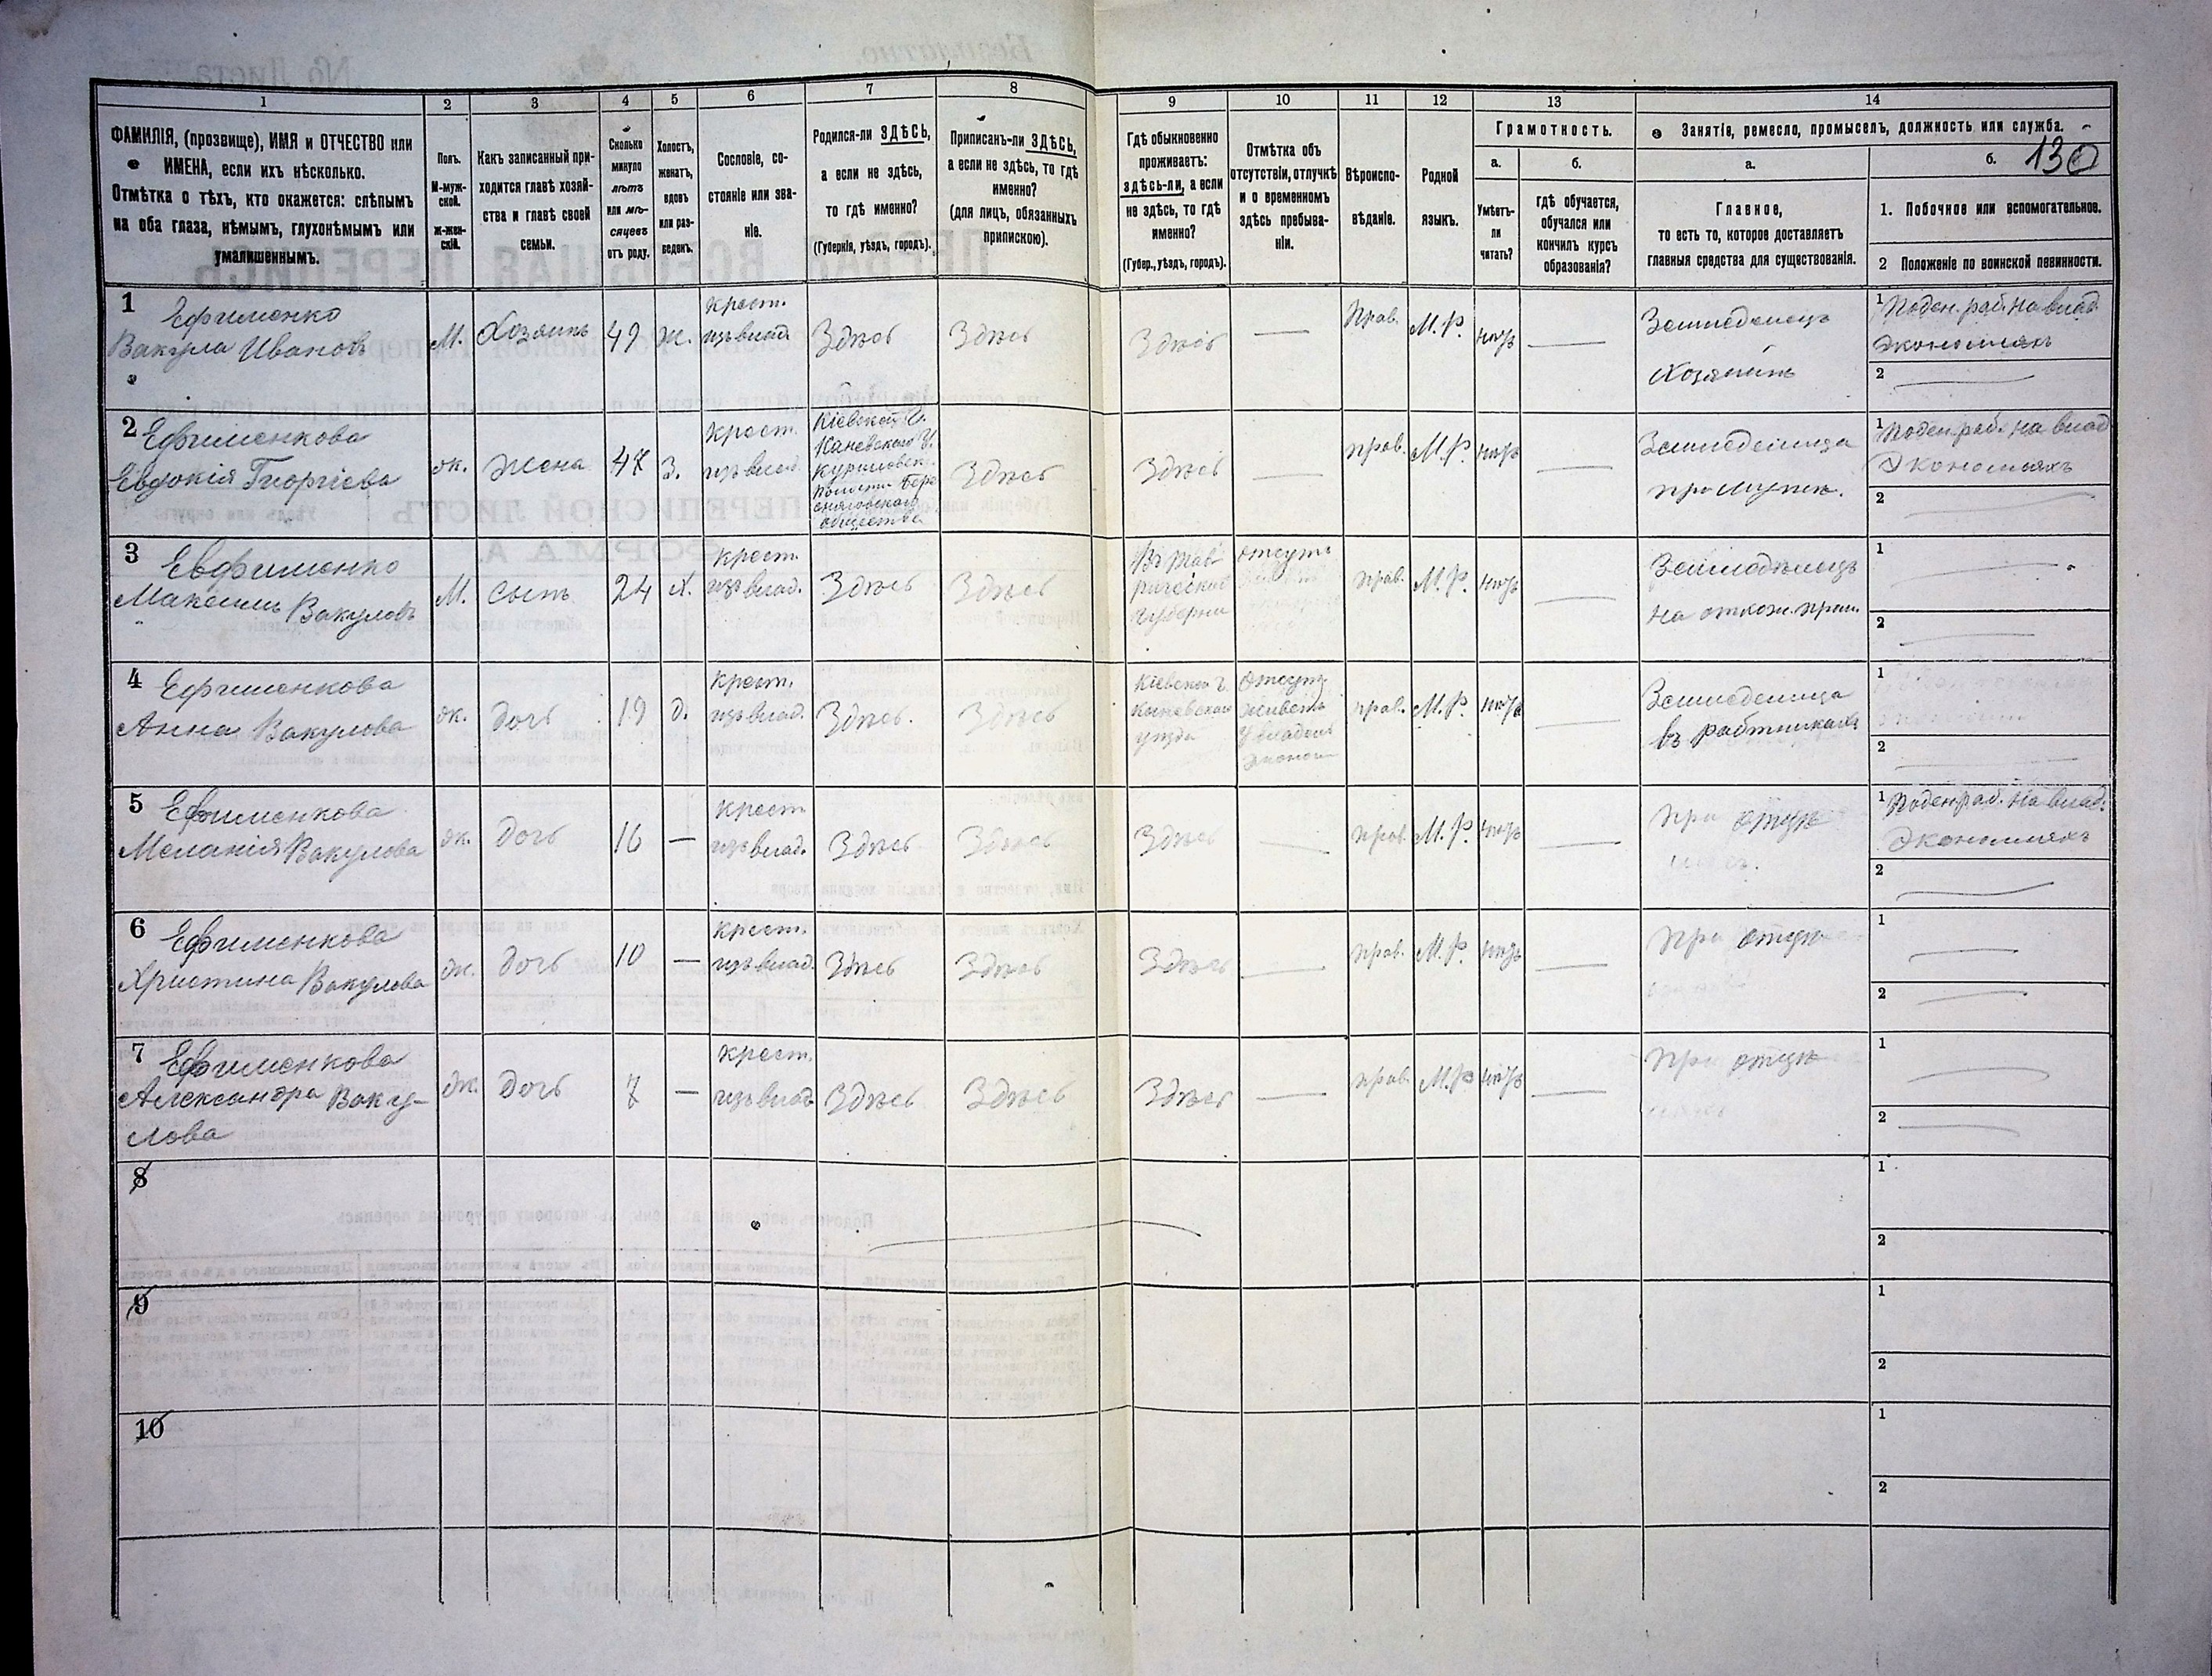 130
1 2 3 4 5 6 7 8 9 10 11 12 13 14
ФАМИЛІЯ, (прозвище), ИМЯ и ОТЧЕСТВО или
ИМЕНА, если ихъ нѣсколько.
Отмѣтка о тѣхъ, кто окажется: слѣпымъ
на оба глаза, нѣмымъ, глухонѣмымъ или
умалишеннымъ.
Полъ.
М-муж-
ской.
ж-жен-
скій.
Какъ записанный при-
ходится главѣ хозяй-
ства и главѣ своей
семьи.
Сколько
минуло
лѣтъ
или мѣ-
сяцевъ
отъ роду.
Холостъ,
женатъ,
вдовъ
или раз-
веденъ.
Сословіе, со-
стояніе или зва-
ніе.
Родился-ли ЗДѢСЬ,
а если не здѣсь,
то гдѣ именно?
(Губернія, уѣздъ, городъ).
Приписанъ-ли ЗДѢСЬ,
а если не здѣсь, то гдѣ
именно?
(для лицъ, обязанныхъ
припискою).
Гдѣ обыкновенно
проживаетъ:
здѣсь-ли, а если
не здѣсь, то гдѣ
именно?
(Губер., уѣздъ, городъ).
Отмѣтка объ
отсутствіи, отлучкѣ
и о временномъ
здѣсь пребыва-
ніи.
Вѣроиспо-
вѣданіе.
Родной
языкъ.
Грамотность.
а.
Умѣетъ-
ли
читать?
б.
гдѣ обучается,
обучался или
кончилъ курсъ
образованія?
Занятіе, ремесло, промыселъ, должность или служба.
а.
Главное,
то есть то, которое доставляетъ
главныя средства для существованія.
б.
1. Побочное или вспомогательное.
2 Положеніе по воинской повинности.
1 Ефименко
Вакула Ивановъ
М.
Хозяинъ
49
ж.
крест.
изъ влад.
Здѣсь
Здѣсь
Здѣсь
—
Прав.
М. Р.
нѣтъ
—
Земледелецъ
Хозяинъ
1 Поден. раб. на влад.
Экономіяхъ
2 —
2 Ефименкова
Евдокія Георгіева
ж.
жена
47
З.
крест.
изъ влад.
Кіевской Г.
Каневского У.
Здѣсь
Здѣсь
—
прав.
М. Р.
нѣтъ
—
Земледелица
при мужѣ.
1 Поден. раб. на влад
Экономіяхъ
2 —
3 Евфименко
Максимъ Вакуловъ
М.
сынъ
24
х.
крест.
изъ влад.
Здѣсь
Здѣсь
Въ Тав-
рической
Губерніи
отсут.
прав.
М. Р.
нѣтъ
—
Земледѣлецъ
на отхож. пром.
1 —
2 —
4 Ефименкова
Анна Вакулова
ж.
дочь
19
д.
крест.
изъ влад.
Здѣсь.
Здѣсь
Кіевской г.
Каневскаго
уѣзда
Отсут.
прав.
М. Р.
нѣтъ
—
Земледелица
въ работникахъ
1
2 —
5 Ефименкова
Меланія Вакулова
ж.
дочь
16
—
крест
изъ влад.
Здѣсь
Здѣсь
Здѣсь
—
прав
М. Р.
нѣтъ
—
при отцѣ
1 Поден. раб. на влад.
Экономіяхъ
2 —
6 Ефименкова
Христина Вакулова
ж.
дочь
10
—
крест.
изъ влад.
Здѣсь
Здѣсь
Здѣсь
—
прав.
М. Р.
нѣтъ
—
при отцѣ
1 —
2 —
7 Ефименкова
Александра Ваку-
лова
ж.
дочь
7
—
крест.
изъ влад
Здѣсь
Здѣсь
Здѣсь
—
прав.
М. Р
нѣтъ
—
при отцѣ
1 —
2 —
8
1
2
9
1
2
10
1
2